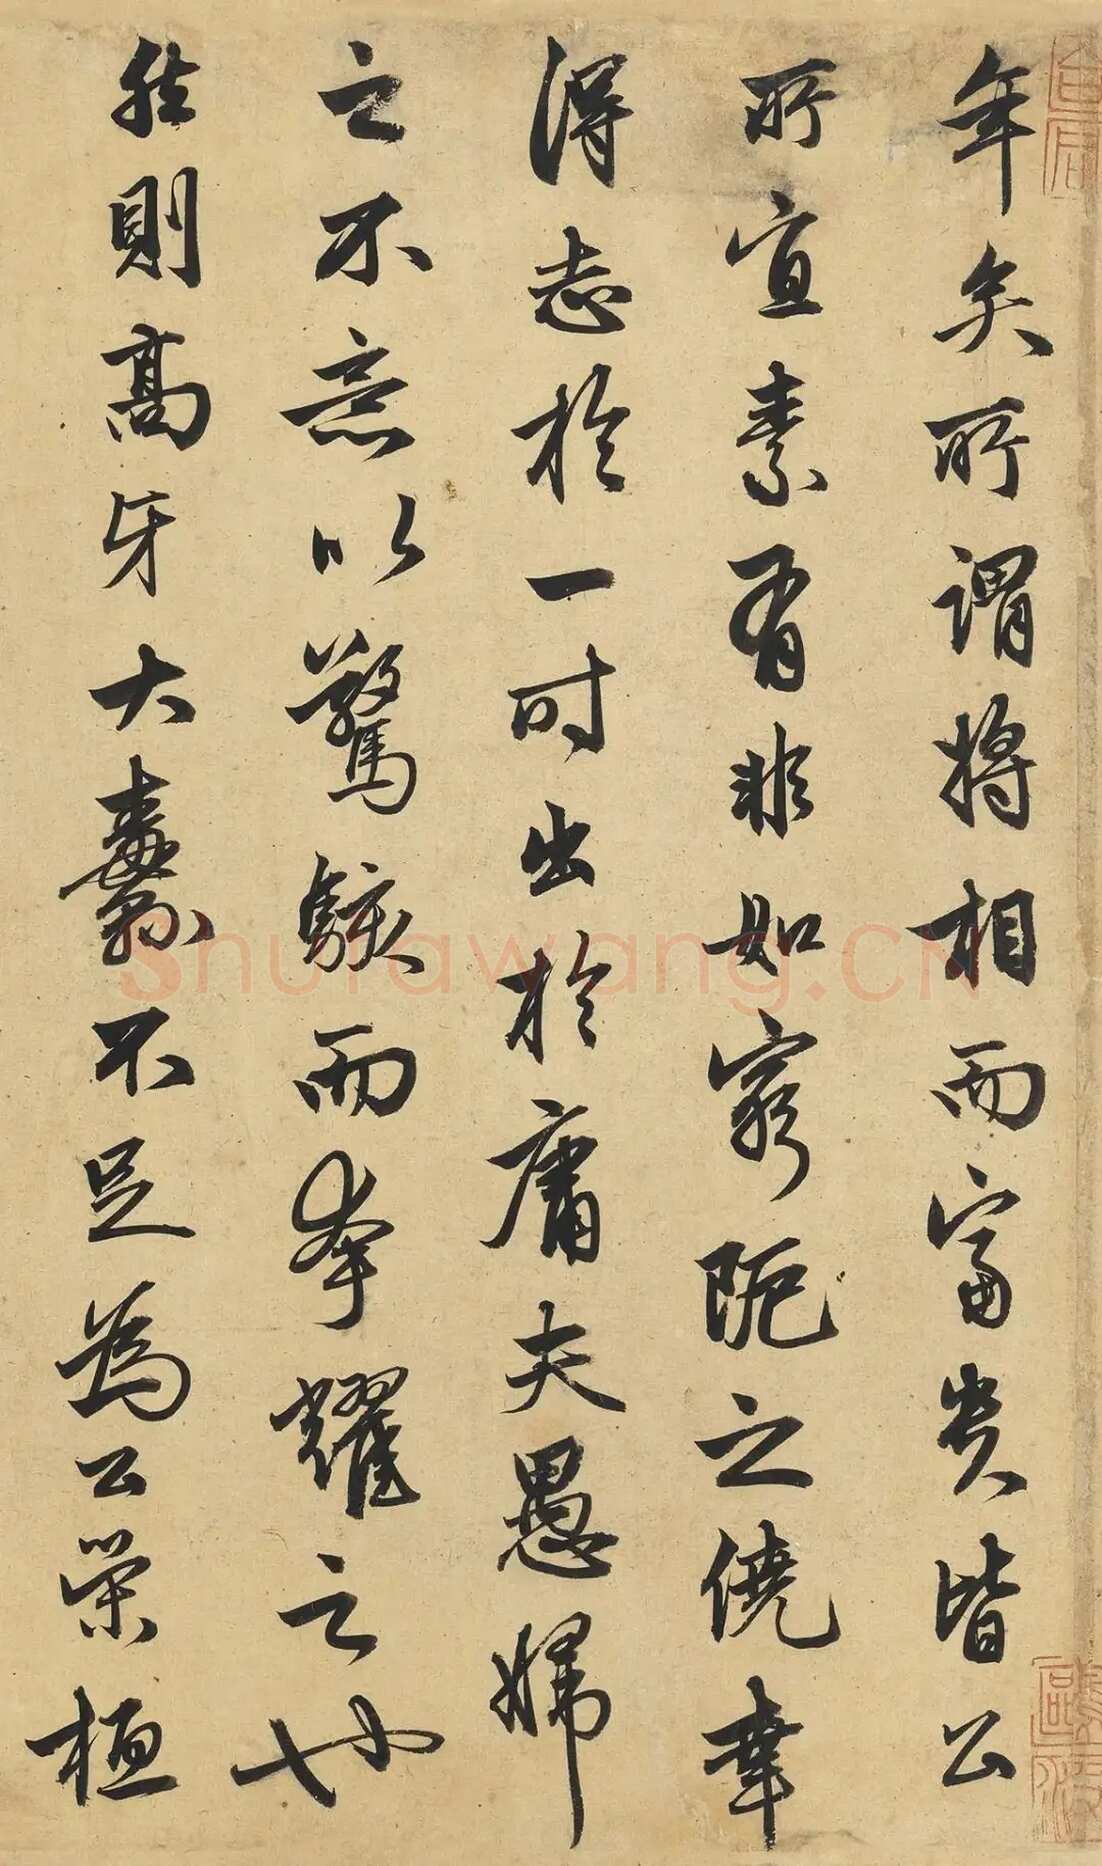 年矣所謂將相而富貴皆公
所宜素有非如窮阨之僥幸
得志於一時出於庸夫愚婦
之不意以驚駭而夸耀之也
然則高牙大纛不足為公榮桓
Shufawang.CN